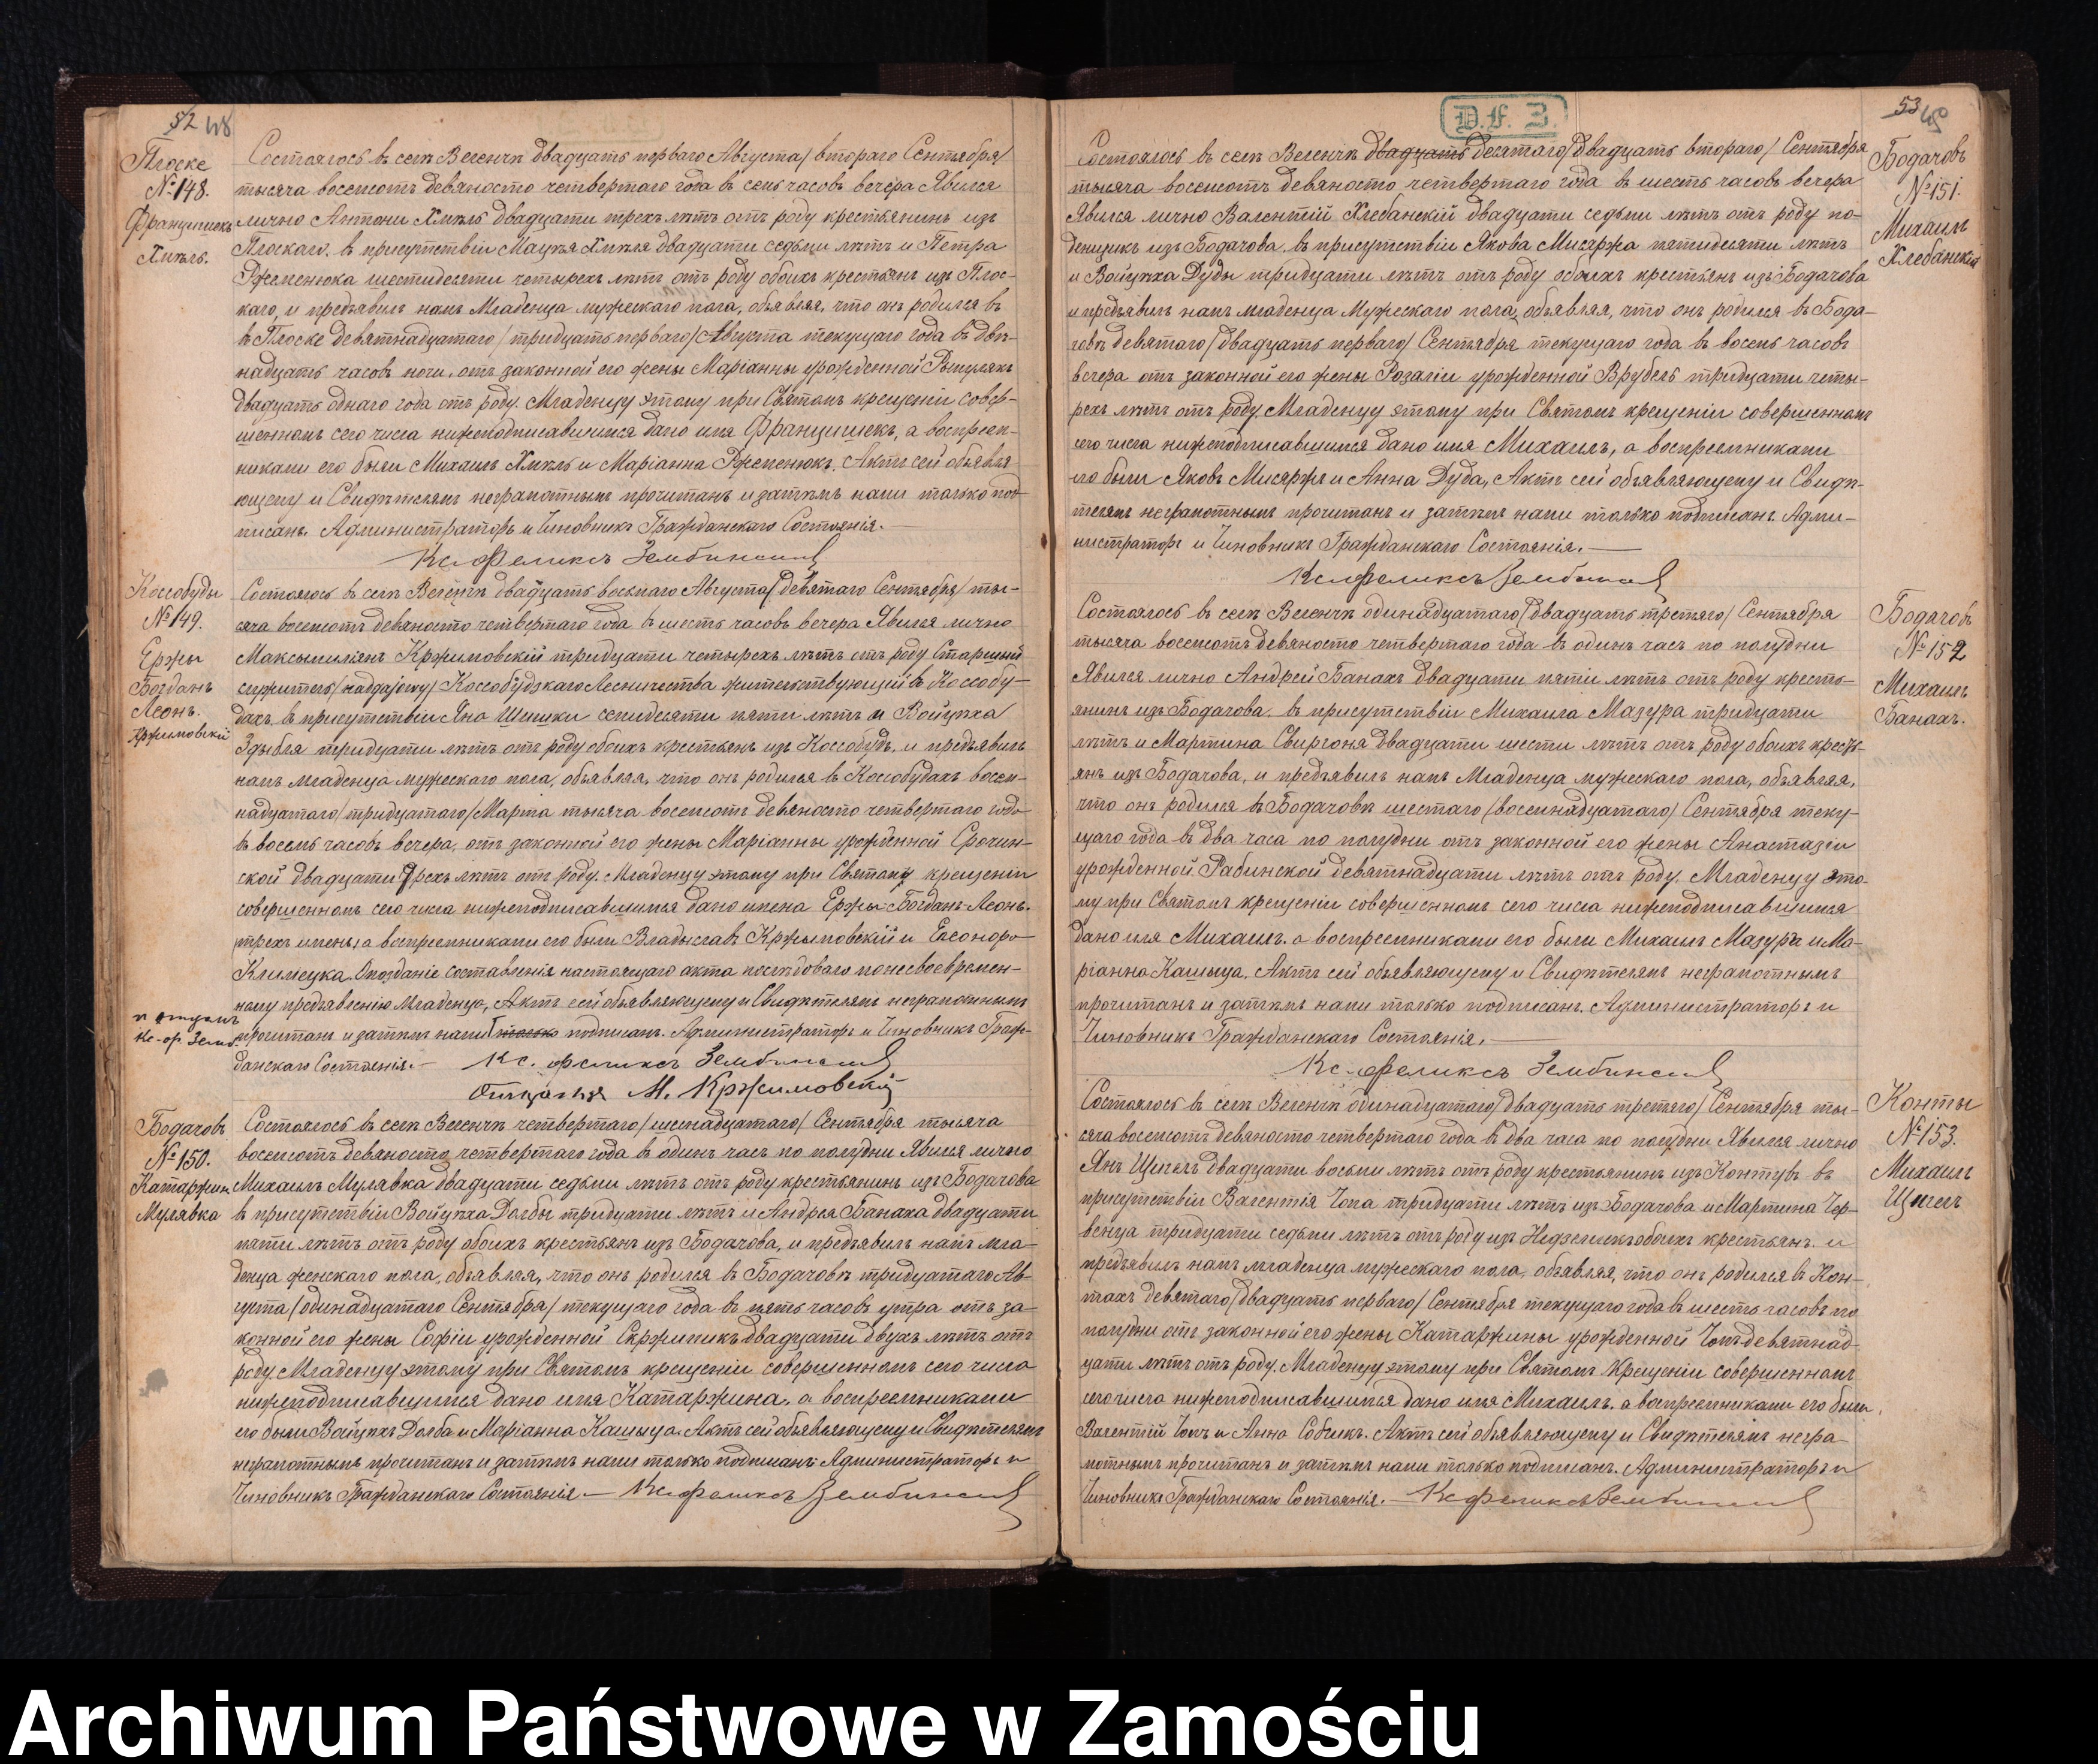 52 48
Плоске
№ 148.
Францишекъ
Хмѣль.
Состоялось въ селѣ Веленчѣ двадцать перваго Августа /втораго Сентября/
тысяча восемсотъ девяносто четвертаго года въ семь часовъ вечера Явился
лично Антони Хмѣль двадцати трехъ лѣтъ отъ роду крестьянинъ изъ
Плоскаго, въ присутствіи Мацѣя Хмѣля двадцати седьми лѣтъ и Петра
Ржеменюка шестидесяти четырехъ лѣтъ отъ роду обоихъ крестьянъ изъ Плос-
каго, и предъявилъ намъ Младенца мужескаго пола, объявляя, что онъ родился въ
въ Плоске девятнадцатаго /тридцать перваго/ Августа текущаго года въ двѣ-
надцать часовъ ночи, отъ законной его жены Маріанны урожденной
двадцать однаго года отъ роду. Младенцу этому при Святомъ крещеніи совер-
шенномъ сего числа нижеподписавшимся дано имя Францишекъ, а воспріем-
никами его были Михаилъ Хмѣль и Маріанна Ржеменюкъ. Актъ сей объявля-
ющему и Свидѣтелямъ неграмотнымъ прочитанъ и затѣмъ нами только под-
писанъ. Администраторъ и Чиновникъ Гражданскаго Состоянія.
Кс. Феликсъ Зембинскій
Коссобуды
№ 149.
Ержы
Богданъ
Леонъ.
Кржимовскій
Состоялось въ селѣ Веленчѣ двадцать восьмаго Августа /девятаго Сентября/ ты-
сяча восемсотъ девяносто четвертаго года въ шесть часовъ вечера Явился лично
Максымильянъ Кржимовскій тридцати четырехъ лѣтъ отъ роду Старшый
служитель /надзајоwу/ Коссобудзкаго Лесничества жительствующій въ Коссобу-
дахъ, въ присутствіи Яна Шевики семидесяти пяти лѣтъ и Войцѣха
Здыбля тридцати лѣтъ отъ роду обоихъ крестьянъ изъ Коссобудъ, и предъявилъ
намъ младенца мужескаго пола, объявляя, что онъ родился въ Коссобудахъ восем-
надцатаго /тридцатаго/ Марта тысяча восемсотъ девяносто четвертаго года
въ восемь часовъ вечера, отъ законной его жены Маріанны урожденной Срочин-
ской двадцати трехъ лѣтъ отъ роду. Младенцу этому при Святомъ крещеніи
совершенномъ сего числа нижеподписавшимся дано имена Ержы-Богданъ-Леонъ.
трехъ именъ, а воспріемниками его были Владыславъ Кржымовскій и Елеонора
Климецка. Опозданіе составленія настоящаго акта послѣдовало по несвоевремен-
ному предъявленію Младенца, Актъ сей объявляющему и Свидѣтелямъ неграмотнымъ
и отцомъ
Кс. Ф. Земб.
прочитанъ и затѣмъ нами только подписанъ. Администраторъ и Чиновникъ Граж-
данскаго Состоянія. – Кс. Феликсъ Зембинскій
М. Кржимовскій
Бодачовъ
№ 150.
Катаржина
Мулявка
Состоялось въ селѣ Веленчѣ четвертаго /шеснадцатаго/ Сентября тысяча
восемсотъ девяносто четвертаго года въ одинъ часъ по полудни Явился лично
Михаилъ Мулявка двадцати седьми лѣтъ отъ роду крестьянинъ изъ Бодачова
въ присутствіи Войцѣха Долбы тридцати лѣтъ и Андрея Банаха двадцати
пяти лѣтъ отъ роду обоихъ крестьянъ изъ Бодачова, и предъявилъ намъ мла-
денца женскаго пола, объявляя, что онъ родился въ Бодачовѣ тридцатаго Ав-
густа /одинадцатаго Сентября/ текущаго года въ пять часовъ утра отъ за-
конной его жены Софіи урожденной Скржипикъ двадцати двухъ лѣтъ отъ
роду. Младенцу этому при Святомъ крещеніи совершенномъ сего числа
нижеподписавшимся дано имя Катаржина, а воспреемниками
его были Войцѣхъ Долба и Маріанна Кашыца. Актъ сей объявляющему и Свидѣтелямъ
неграмотнымъ прочитанъ и затѣмъ нами только подписанъ. Администраторъ и
Чиновникъ Гражданскаго Состоянія. – Кс. Феликсъ Зембинскій
D. F. 3.
53 49
Бодачовъ
№ 151.
Михаилъ
Хлебанскій
Состоялось въ селѣ Веленчѣ двадцать десятаго /двадцать втораго/ Сентября
тысяча восемсотъ девяносто четвертаго года въ шесть часовъ вечера
Явился лично Валентій Хлебанскій двадцати седьми лѣтъ отъ роду по-
денщикъ изъ Бодачова, въ присутствіи Якова Мисяржа пятидесяти лѣтъ
и Войцѣха Дуды тридцати лѣтъ отъ роду обоихъ крестьянъ изъ Бодачова
и предъявилъ намъ младенца Мужескаго пола, объявляя, что онъ родился въ Бода-
човѣ девятаго /двадцать перваго/ Сентября текущаго года въ восемь часовъ
вечера отъ законной его жены Розаліи урожденной Врубель тридцати четы-
рехъ лѣтъ отъ роду. Младенцу этому при Святомъ крещеніи совершенномъ
сего числа нижеподписавшимся дано имя Михаилъ, а воспреемниками
его были Яковъ Мисяржъ и Анна Дуда, Актъ сей объявляющему и Свидѣ-
телямъ неграмотнымъ прочитанъ и затѣмъ нами только подписанъ. Адми-
нистраторъ и Чиновникъ Гражданскаго Состоянія. –
Кс. Феликсъ Зембинскій
Бодачовъ
№ 152
Михаилъ
Банахъ.
Состоялось въ селѣ Веленчѣ одинадцатаго /двадцать третяго/ Сентября
тысяча восемсотъ девяносто четвертаго года въ одинъ часъ по полудни
Явился лично Андрей Банахъ двадцати пяти лѣтъ отъ роду кресть-
янинъ изъ Бодачова, въ присутствіи Михаила Мазура тридцати
лѣтъ и Мартина Свиргоня двадцати шести лѣтъ отъ роду обоихъ кресть-
янъ изъ Бодачова, и предъявилъ намъ Младенца мужескаго пола, объявляя,
что онъ родился въ Бодачовѣ шестаго /восемнадцатаго/ Сентября теку-
щаго года въ два часа по полудни отъ законной его жены Анастазіи
урожденной Рабинской девятнадцати лѣтъ отъ роду. Младенцу это-
му при Святомъ крещеніи совершенномъ сего числа нижеподписавшимся
дано имя Михаилъ. а воспреемниками его были Михаилъ Мазуръ и Ма-
ріанна Кашыца. Актъ сей объявляющему и Свидѣтелямъ неграмотнымъ
прочитанъ и затѣмъ нами только подписанъ. Администраторъ и
Чиновникъ Гражданскаго Состоянія. –
Кс. Феликсъ Зембинскій
Конты
№ 153.
Михаилъ
Щипель
Состоялось въ селѣ Веленчѣ одинадцатаго /двадцать третяго/ Сентября ты-
сяча восемсотъ девяносто четвертаго года въ два часа по полудни Явился лично
Янъ Щипель двадцати восьми лѣтъ отъ роду крестьянинъ изъ Контувъ въ
присутствіи Валентія Чопа тридцати лѣтъ изъ Бодачова и Мартина Чер-
венца тридцати седьми лѣтъ отъ роду изъ обоихъ крестьянъ. и
предъявилъ намъ младенца мужескаго пола, объявляя, что онъ родился въ Кон-
тахъ девятаго /двадцать перваго/ Сентября текущаго года въ шесть часовъ по
полудни отъ законной его жены Катаржины урожденной Чопъ девятнад-
цати лѣтъ отъ роду. Младенцу этому при Святомъ крещеніи совершенномъ
сего числа нижеподписавшимся дано имя Михаилъ. а воспреемниками его были
Валентій Чопъ и Анна Собчикъ. Актъ сей объявляющему и Свидѣтелямъ негра-
мотнымъ прочитанъ и затѣмъ нами только подписанъ. Администраторъ и
Чиновникъ Гражданскаго Состоянія. – Кс. Феликсъ Зембинскій
Archiwum Państwowe w Zamościu